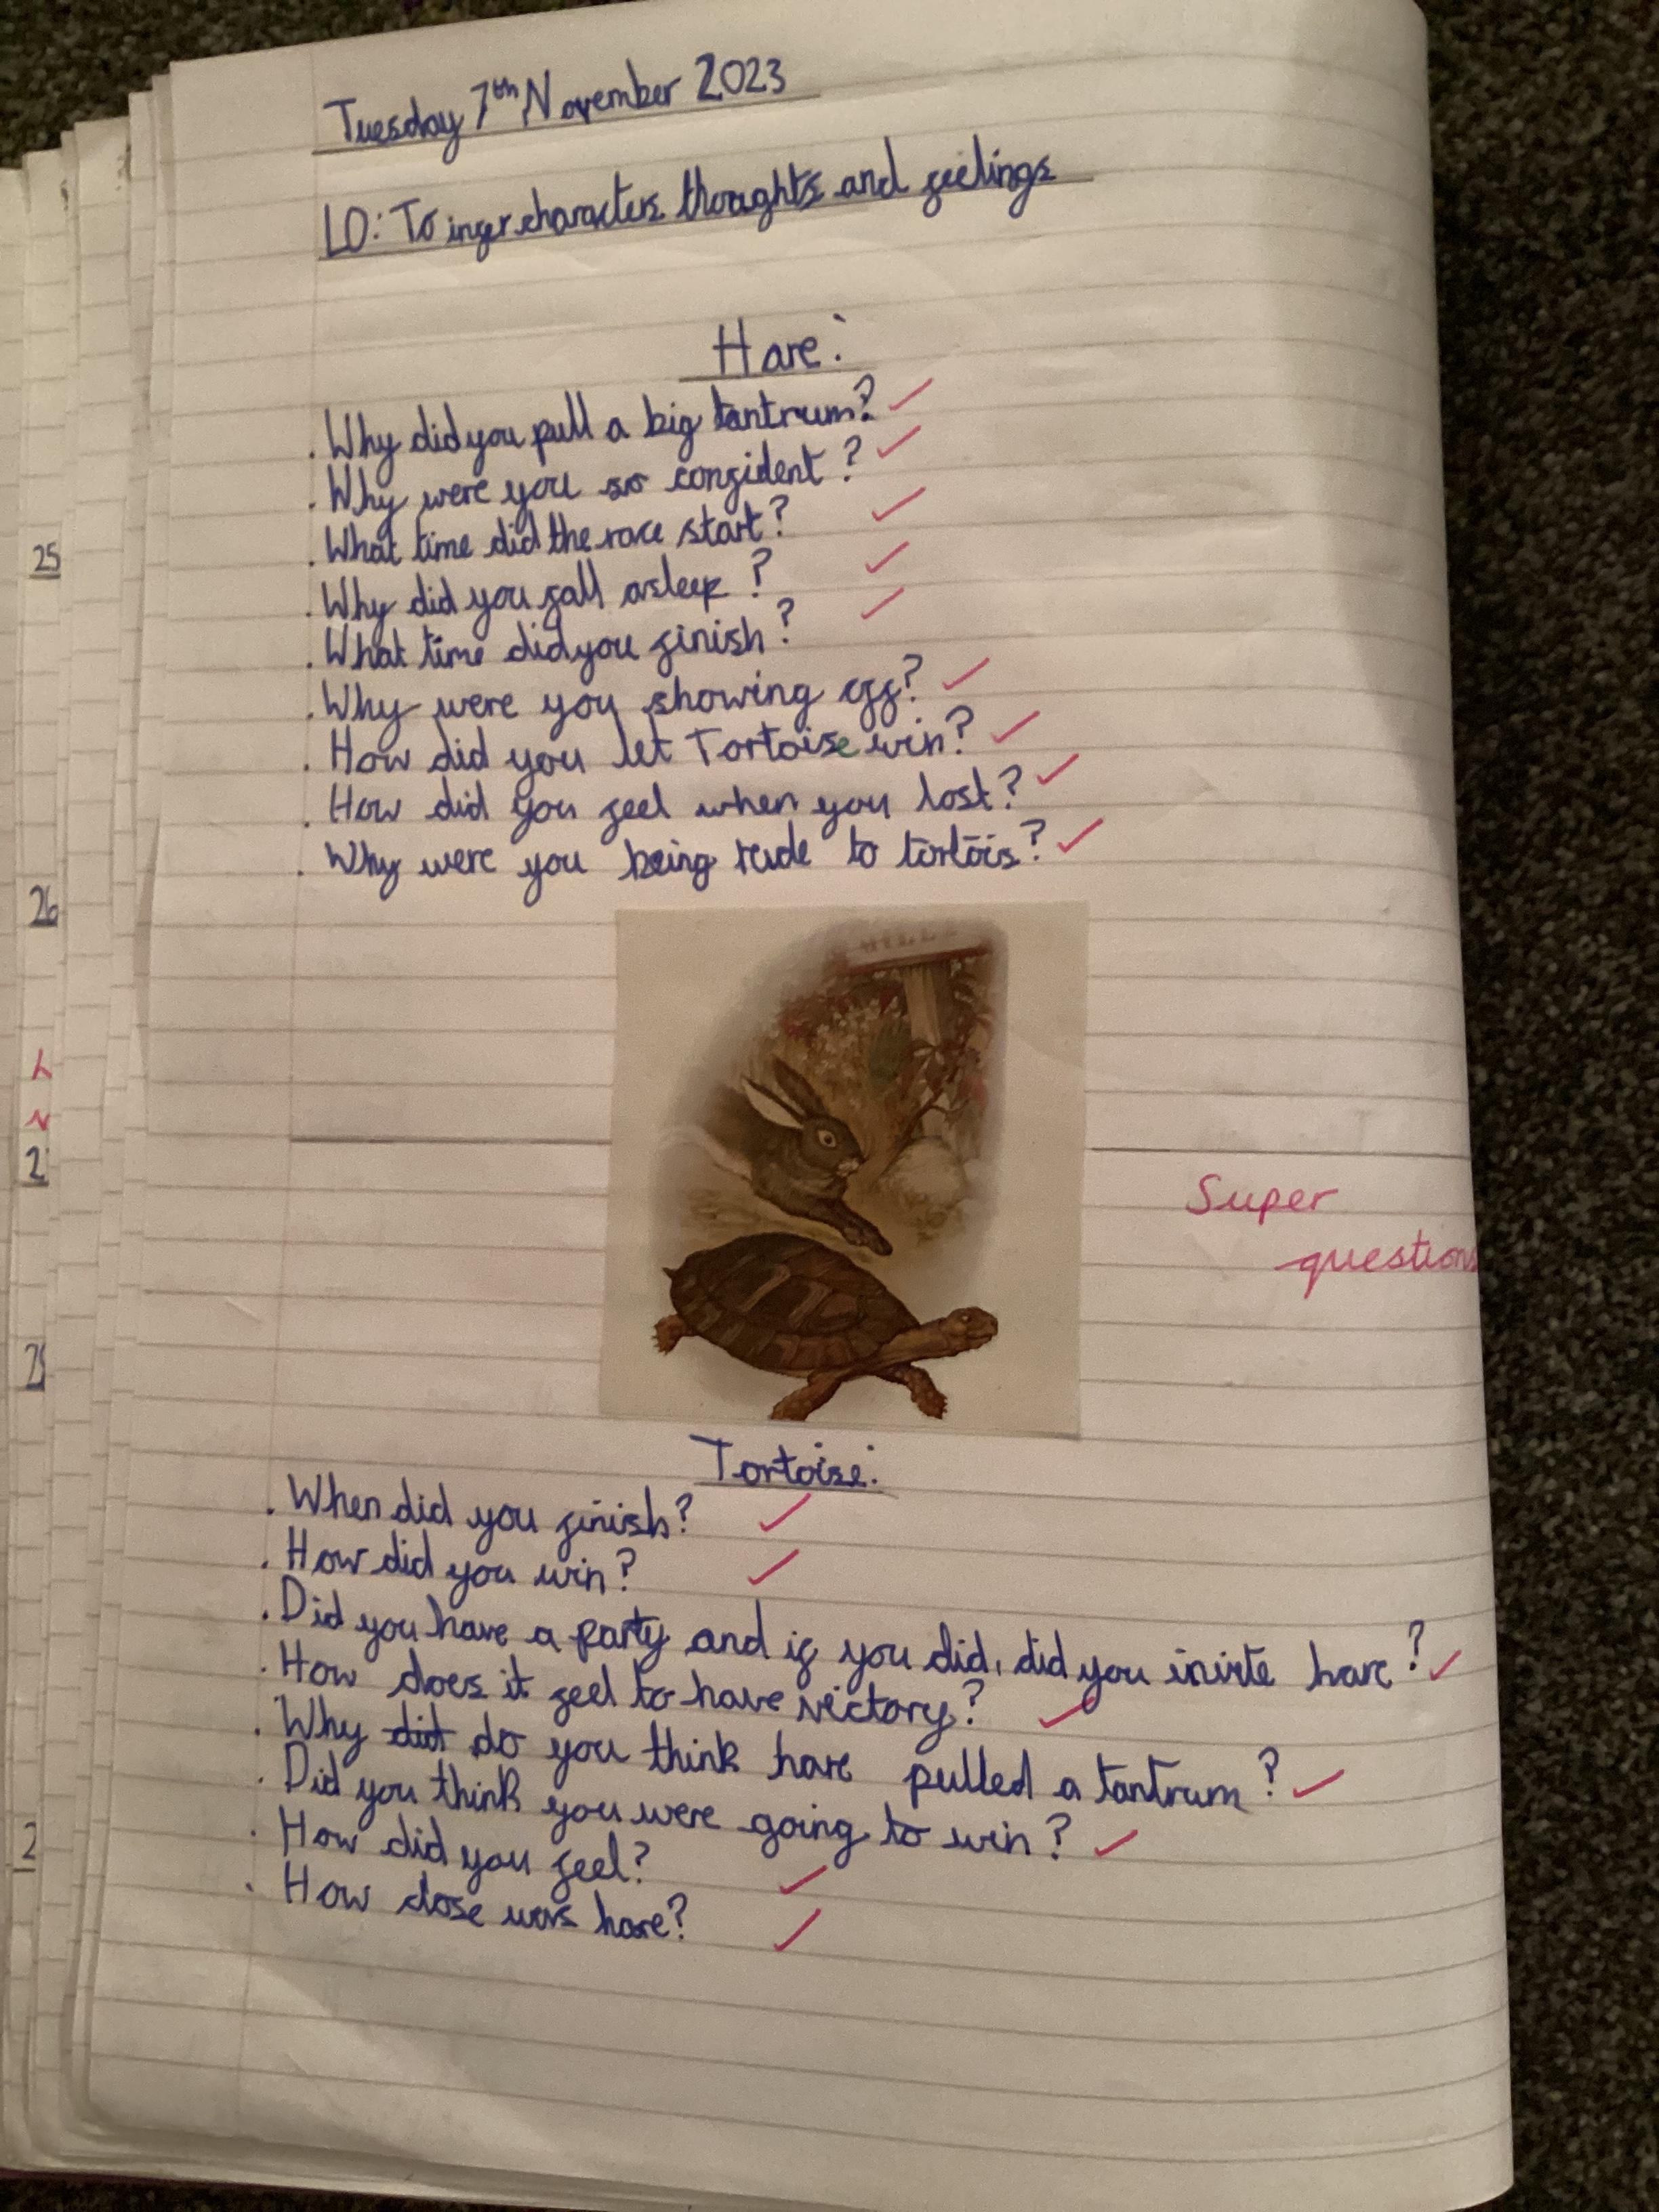 Tuesday 7th November 2023
LO: To infer characters thoughts and feelings
Hare:
. Why did you pull a big tantrum?
. Why were you so confident?
. What time did the race start?
. Why did you fall asleep?
. What time did you finish?
. Why were you showing off?
. How did you let Tortoise win?
. How did you feel when you lost?
. Why were you being rude to tortois?
25
26
2
2
Super
questions
Tortoise:
. When did you finish?
. How did you win?
. Did you have a party and if you did, did you invite hare?
. How does it feel to have victory?
. Why did do you think hare pulled a tantrum?
. Did you think you were going to win?
. How did you feel?
. How close was hare?